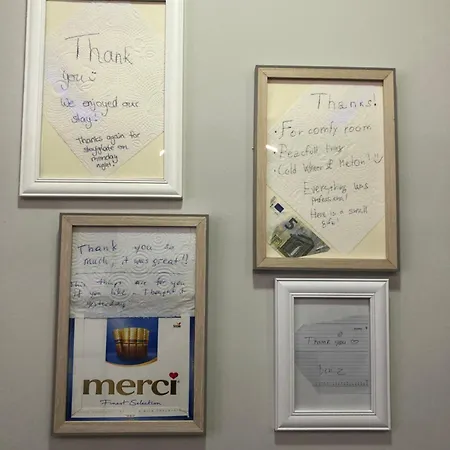 Thank
you
We enjoyed our
stay!
Thanks again for
on
monday
night!
Thanks!
For comfy room
Peacefull
Cold Water & Melon!
Everything was
professional!
Here is a small
gift!
5
Thank you so
much, it was great!!
things are for you
if you like. I bought it
yesterday
merci
Finest Selection
Thank you